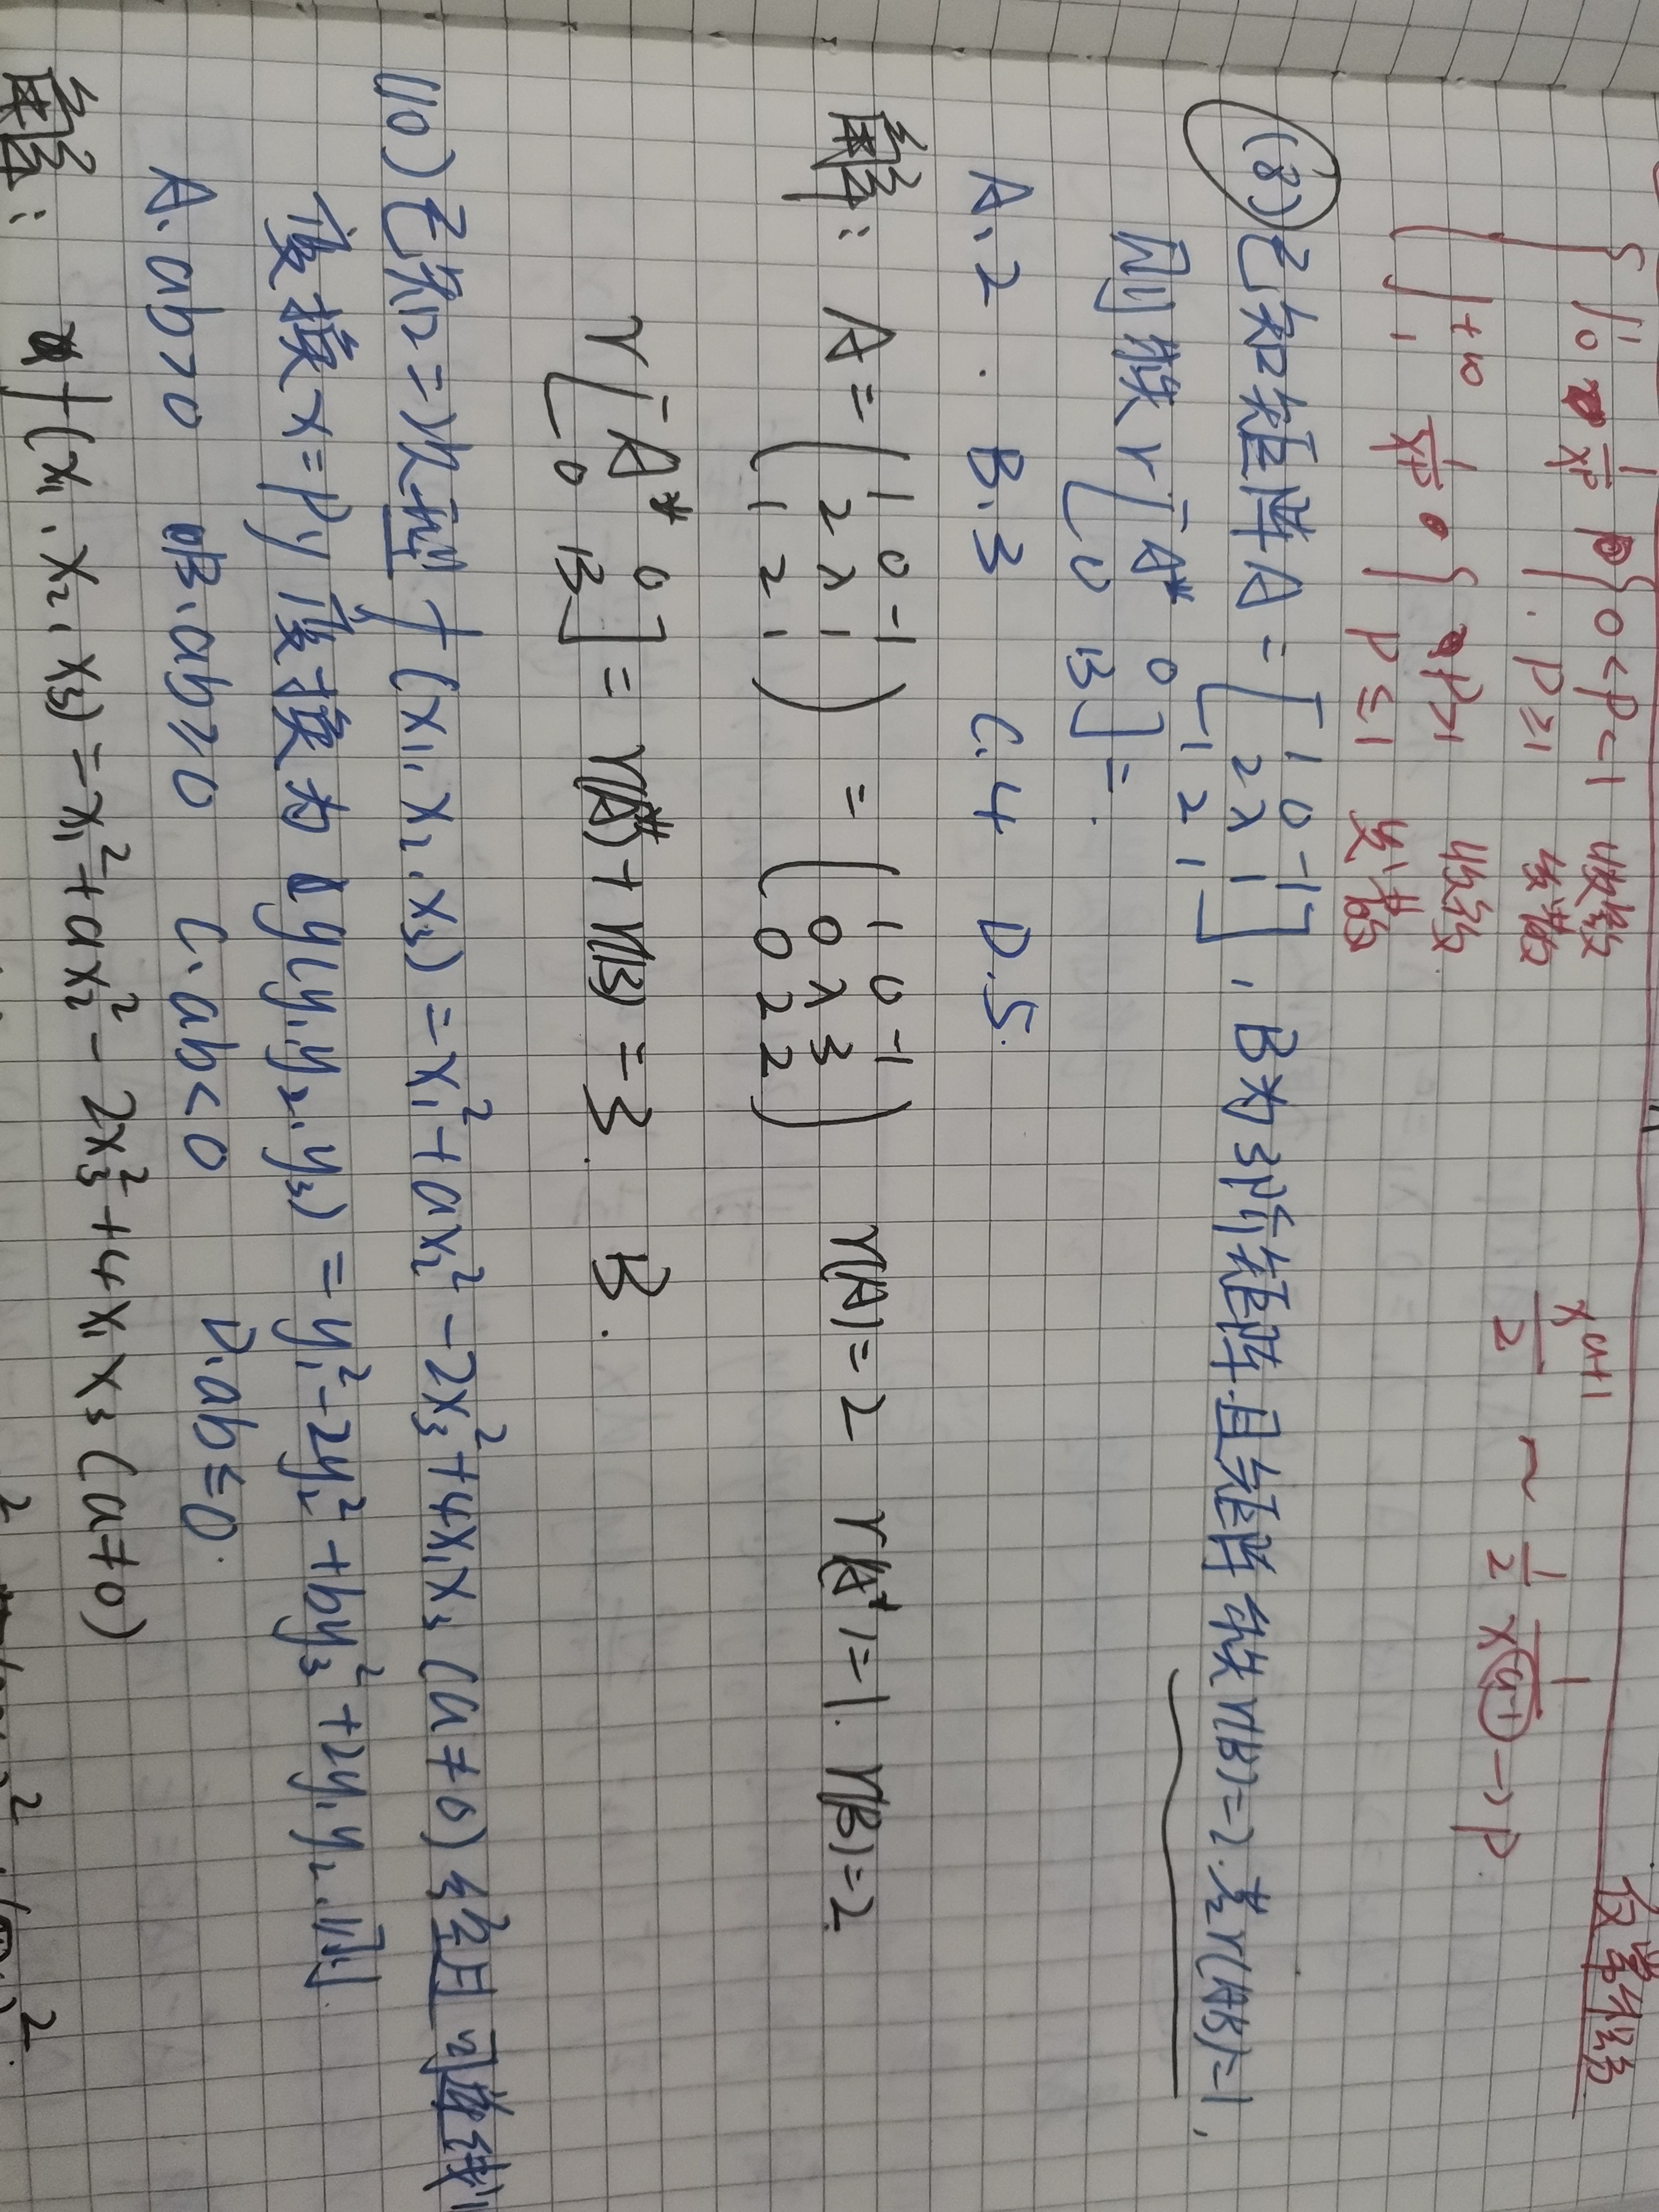 ∫₀¹ 1/xᵖ { 0<p<1 收敛
p≥1 发散
∫₁^{+∞} 1/xᵖ { p>1 收敛
p≤1 发散
仅学积分
(8) 已知矩阵A=[1 0 -1; 2 λ 1; 1 2 1], B为3阶矩阵且矩阵秩r(B)=2.若r(AB)=1,
则秩r[A* 0; 0 B]=.
A.2. B.3 C.4 D.5.
解: A=(1 0 -1; 2 λ 1; 1 2 1) = (1 0 -1; 0 λ 3; 0 2 2) r(A)=2 r(A*)=1. r(B)=2
r[A* 0; 0 B] = r(A*)+r(B)=3. B.
(10) 已知二次型f(x₁,x₂,x₃)=x₁²+ax₂²-2x₃²+4x₁x₃(a≠0)经可逆线性
变换x=Py变换为g(y₁,y₂,y₃)=y₁²-2y₂²+by₃²+2y₁y₂.则
A.ab>0 B.ab≥0 C.ab<0 D.ab≤0.
解: f(x₁,x₂,x₃)=x₁²+ax₂²-2x₃²+4x₁x₃(a≠0)